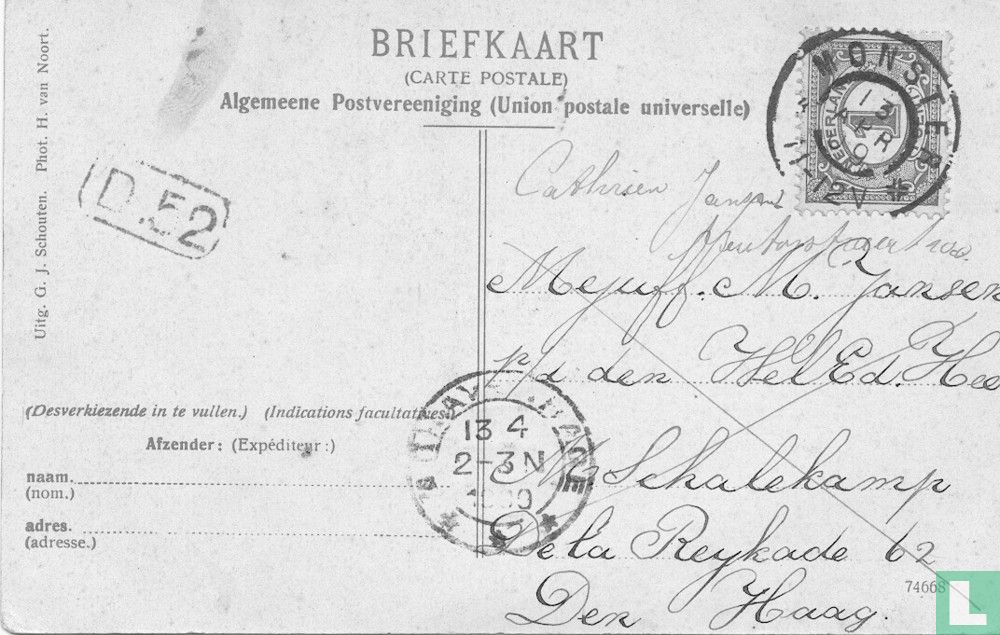 BRIEFKAART
(CARTE POSTALE)
Algemeene Postvereeniging (Union postale universelle)
Uitg. G. J. Schouten. Phot. H. van Noort.
D.52
NEDERLAND
1
MONSTER
13 APR 0
11-12V
Cathrien Jansen
Mejuff. M. Jansen
p/a den WelEd. Hee
Mr. Schalekamp
De la Reykade 62
Den Haag.
(Desverkiezende in te vullen.) (Indications facultatives.)
Afzender: (Expéditeur:)
naam.
(nom.)
adres.
(adresse.)
'S GRAVENHAGE
13 4
2-3N
74668
L